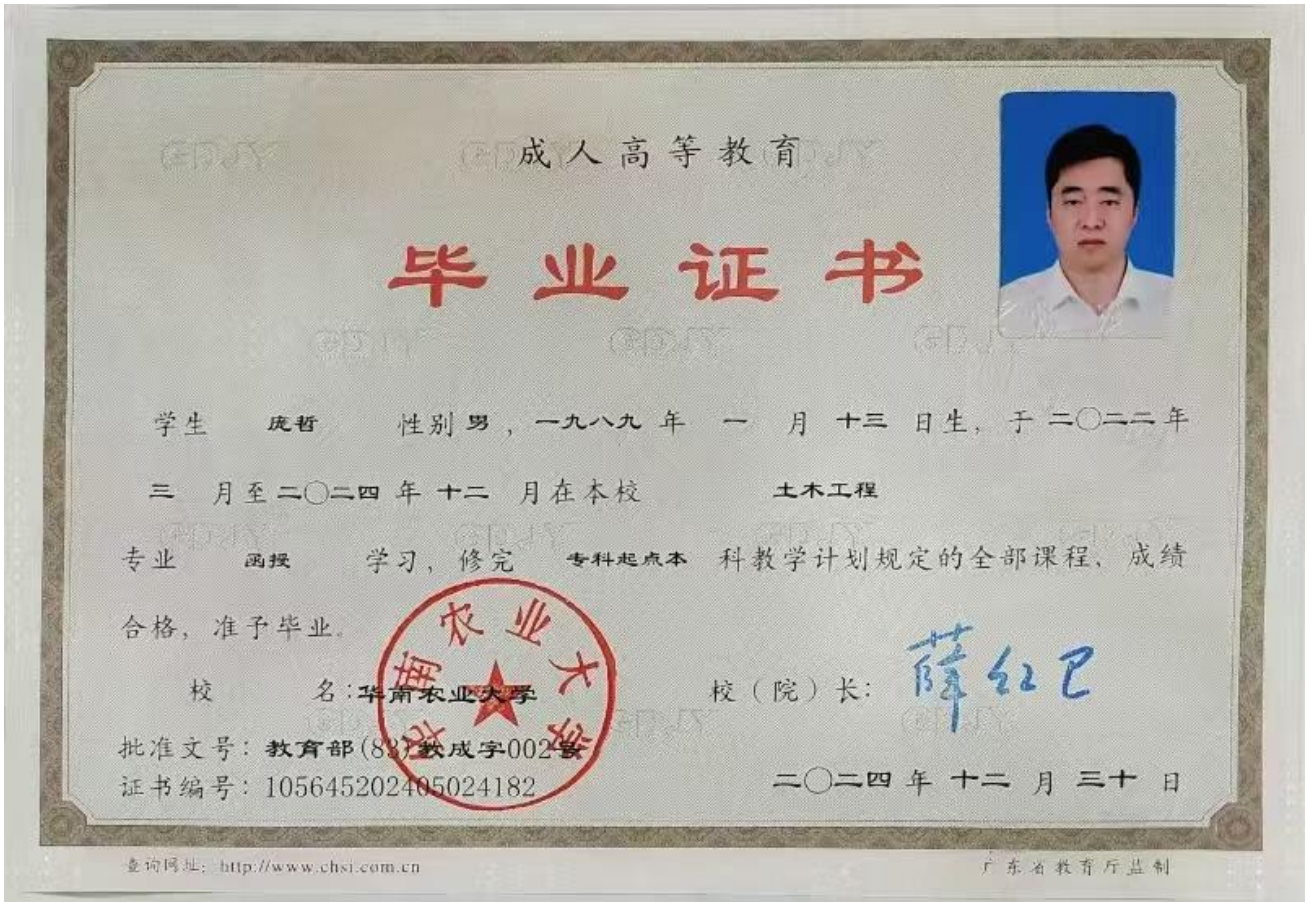 成人高等教育
毕业证书
学生 庞哲 性别 男 , 一九八九 年 一 月 十三 日生, 于 二〇二二 年
三 月至 二〇二四 年 十二 月在本校 土木工程
专业 函授 学习, 修完 专科起点本 科教学计划规定的全部课程、成绩
合格, 准予毕业。
校 名:华南农业大学
校（院）长: 薛红卫
批准文号: 教育部(83)教成字002号
证书编号: 105645202405024182
二〇二四 年 十二 月 三十 日
华南农业大学
查询网址: http://www.chsi.com.cn
广东省教育厅监制